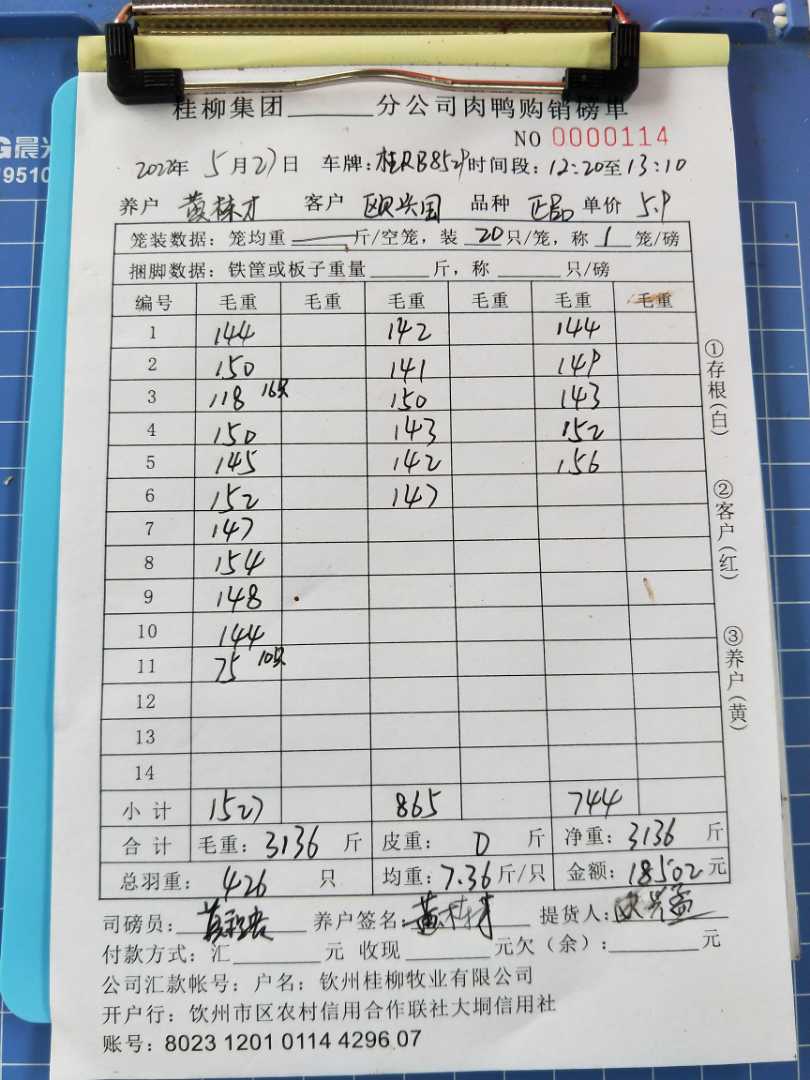 桂柳集团______分公司肉鸭购销磅单
NO 0000114
2022年 5月27日 车牌:桂RB8529 时间段:12:20至13:10
养户 客户 欧兴国 品种 正品 单价 5.9
笼装数据:笼均重____斤/空笼,装 20 只/笼,称 1 笼/磅
捆脚数据:铁筐或板子重量____斤,称____只/磅
编号 毛重 毛重 毛重 毛重 毛重 毛重
1 144 142 144
2 150 141 149
3 118 16只 150 143
4 150 143 152
5 145 142 156
6 152 147
7 147
8 154
9 148
10 144
11 75 10只
12
13
14
小计 1527 865 744
合计 毛重:3136斤 皮重:0斤 净重:3136斤
总羽重:426只 均重:7.36斤/只 金额:18502元
司磅员: 养户签名: 提货人:
付款方式:汇____元 收现____元欠(余):____元
公司汇款帐号:户名:钦州桂柳牧业有限公司
开户行:钦州市区农村信用合作联社大垌信用社
账号:8023 1201 0114 4296 07
①存根(白)
②客户(红)
③养户(黄)
晨光
9510